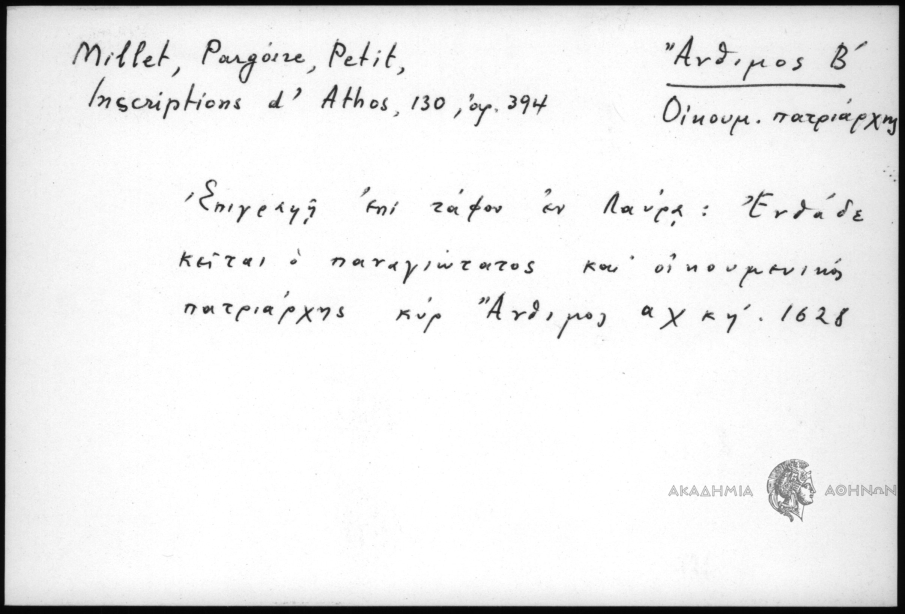 Millet, Pargoire, Petit,
Inscriptions d' Athos, 130, ἀρ. 394
Ἄνθιμος Β´
Οἰκουμ. πατριάρχης
Ἐπιγραφὴ ἐπὶ τάφου ἐν Λαύρᾳ: Ἐνθάδε
κεῖται ὁ παναγιώτατος καὶ οἰκουμενικός
πατριάρχης κύρ Ἄνθιμος αχκη´. 1628
ΑΚΑΔΗΜΙΑ ΑΘΗΝΩΝ